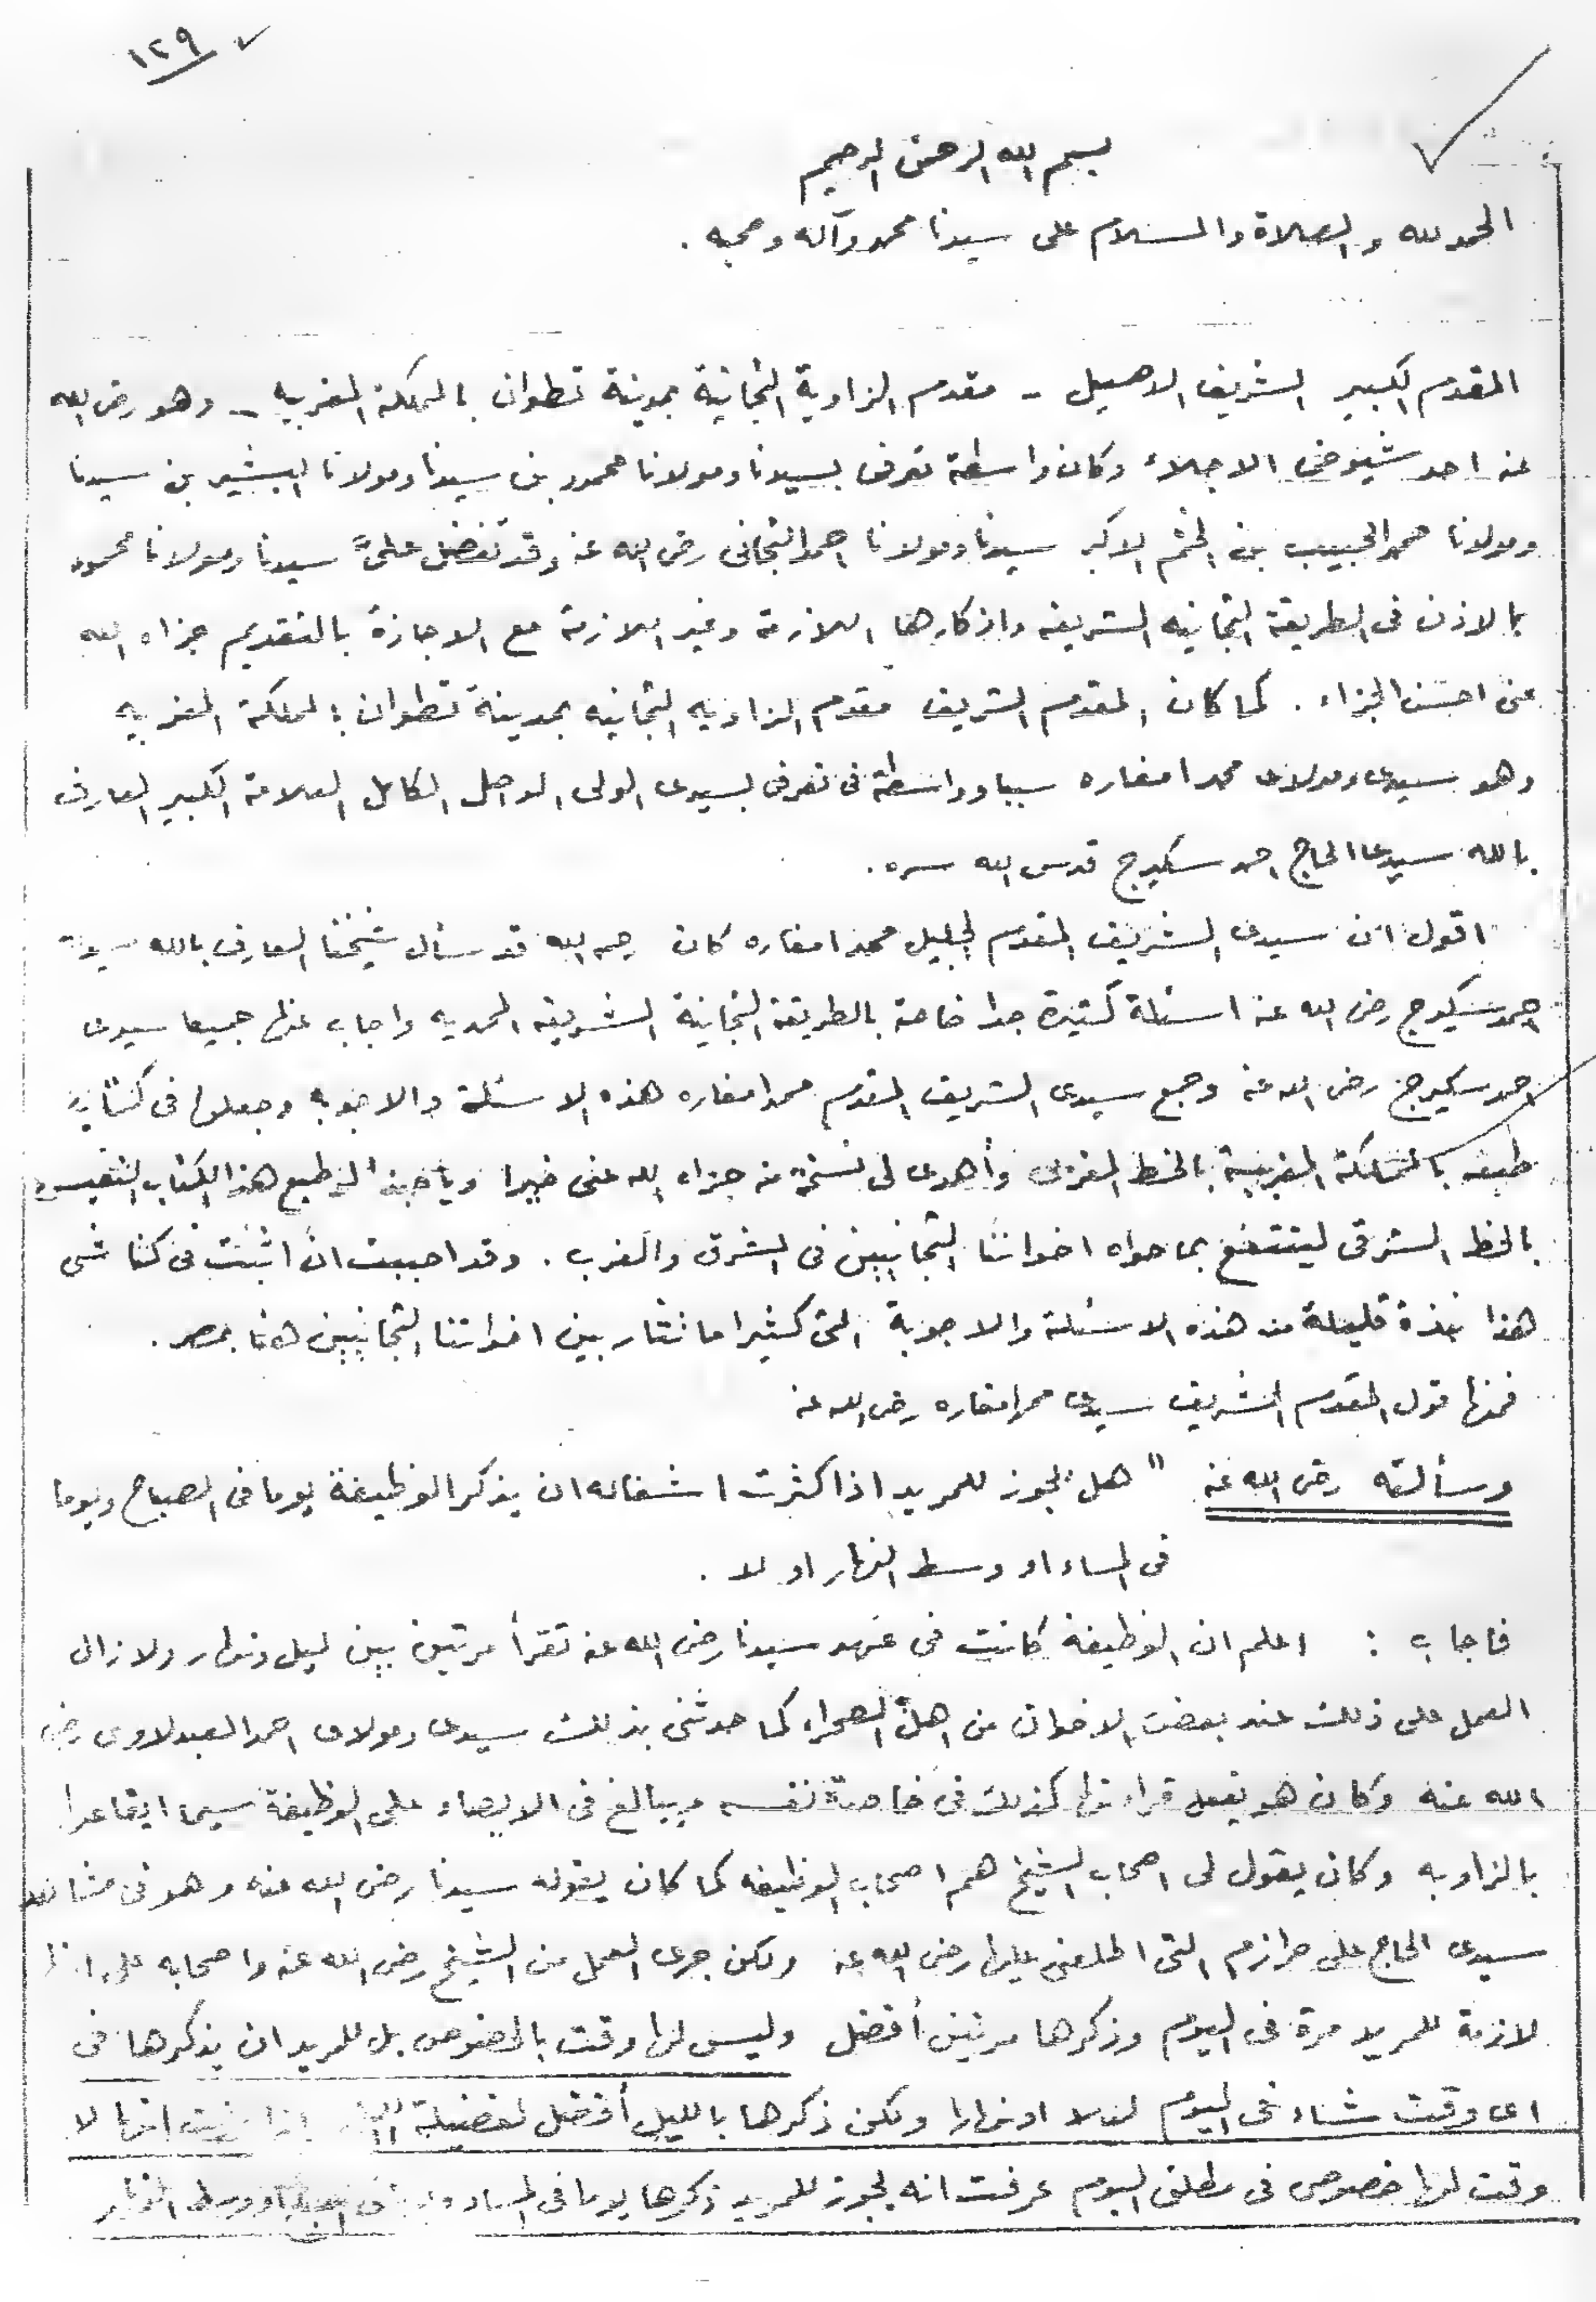 ١٢٩
بسم الله الرحمن الرحيم
الحمد لله والصلاة والسلام على سيدنا محمد وآله وصحبه .
المقدم الكبير الشريف الاصيل - مقدم الزاوية التجانية بمدينة تطوان بالمملكة المغربيه - وهو رضى الله
عنه احد شيوخى الاجلاء وكان واسطة تعرفى بسيدنا ومولانا محمود بن سيدنا ومولانا البشير بن سيدنا
ومولانا محمد الحبيب بن الختم الاكبر سيدنا ومولانا احمد التجانى رضى الله عنه وقد تفضل علىّ سيدنا ومولانا محمود
بالاذن فى الطريقة التجانيه الشريفه واذكارها اللازمة وغير اللازمة مع الاجازة بالتقديم جزاه الله
عنى احسن الجزاء . كما كان المقدم الشريف مقدم الزاويه التجانيه بمدينة تطوان بالمملكة المغربيه
وهو سيدى ومولاى محمد امغاره سببا وواسطة فى تعرفى بسيدى الولى الواصل الكامل العلامة الكبير العارف
بالله سيدى الحاج احمد سكيرج قدس الله سره .
اقول ان سيدى الشريف المقدم الجليل محمد امغاره كان رحمه الله قد سأل شيخنا العارف بالله سيدنا
احمد سكيرج رضى الله عنه اسئلة كثيرة جدا خاصة بالطريقة التجانية الشريفه المحمديه واجاب عنها جميعا سيدى
احمد سكيرج رضى الله عنه وجمع سيدى الشريف المقدم محمد امغاره هذه الاسئلة والاجوبه وجعلها فى كتاب
طبعه بالمملكة المغربية بالخط المغربى وأهدى لى نسخة منه جزاه الله عنى خيرا ويا حبذا لو طبع هذا الكتاب النفيس
بالخط الشرقى لينتفع بما حواه اخواننا التجانيين فى الشرق والغرب . وقد احببت ان اثبت فى كناشى
هذا نبذة قليلة من هذه الاسئلة والاجوبة التى كثيرا ما تثار بين اخواننا التجانيين هنا بمصر .
فمنها قول المقدم الشريف سيدى محمد امغاره رضى الله عنه
وسألته رضى الله عنه " هل يجوز للمريد اذا كثرت اشغاله ان يذكر الوظيفة يوما فى الصباح ويوما
فى المساء او وسط النهار او لا .
فاجاب : اعلم ان الوظيفه كانت فى عهد سيدنا رضى الله عنه تقرأ مرتين بين ليل ونهار ولا زال
العمل على ذلك عند بعض الاخوان من اهل الصحراء كما حدثنى بذلك سيدى ومولاى احمد العبدلاوى رضى
الله عنه وكان هو يفعل قراءتها كذلك فى خاصة نفسه ويبالغ فى الايصاء على الوظيفة سيما ايقاعها
بالزاويه وكان يقول لى اصحاب الشيخ هم اصحاب الوظيفه كما كان يقوله سيدنا رضى الله عنه وهو فى مشاهد
سيدى الحاج على حرازم التى اطلعنى عليها رضى الله عنه ولكن جرى العمل من الشيخ رضى الله عنه واصحابه على انها
لازمة للمريد مرة فى اليوم وذكرها مرتين أفضل وليس لها وقت بالخصوص بل للمريد ان يذكرها فى
اى وقت شاء فى اليوم ليلا او نهارا ولكن ذكرها بالليل أفضل لفضيلة انها لا
وقت لها خصوصى فى مطلق اليوم عرفت انه يجوز للمريد ذكرها يوما فى المساء ووسط النهار